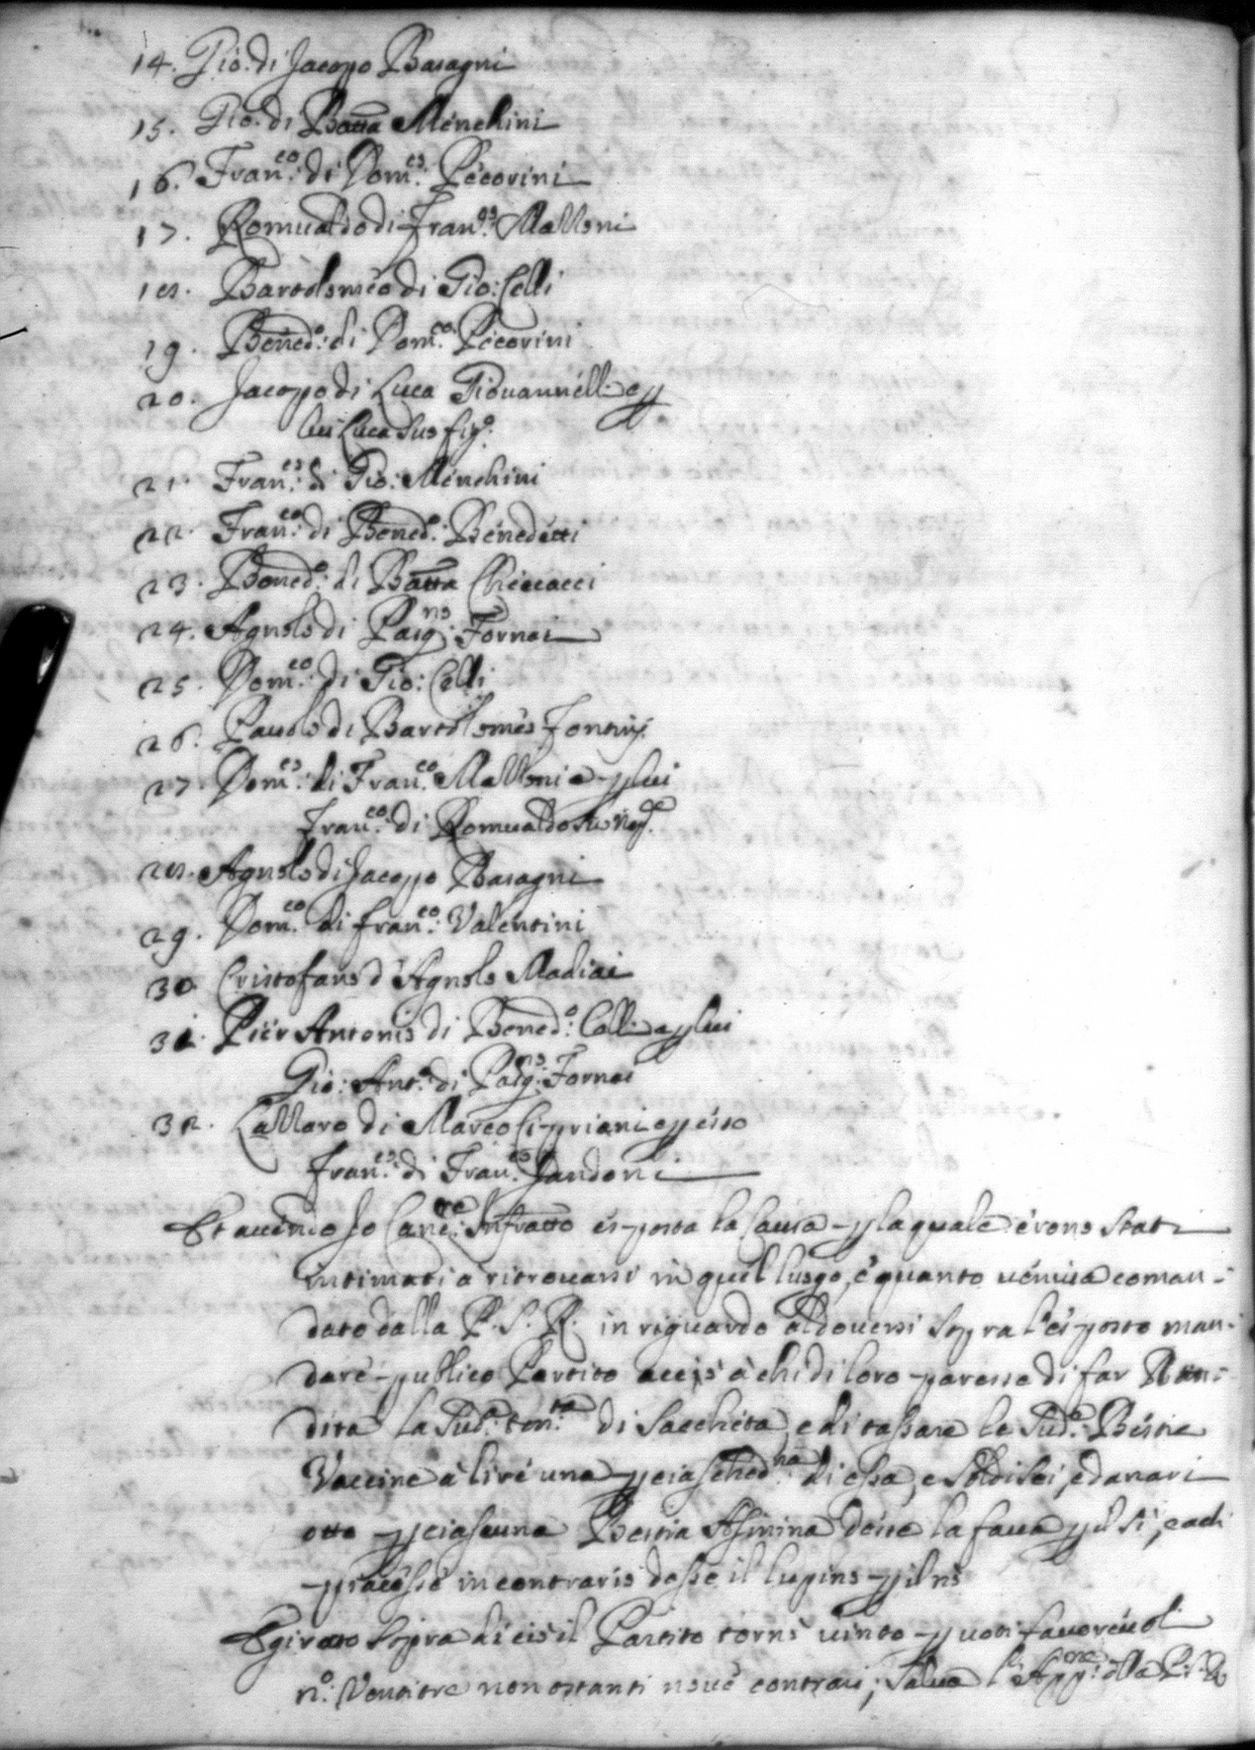 14. Gio: di Jacopo Baragni
15. Gio: di Batta Menchini
16. Fran.co di Dom.co Pecorini
17. Romualdo di Fran.co Masoni
18. Bartolomeo di Gio: Celli
19. Bened.o di Dom.co Pecorini
20. Jacopo di Luca Giovannelli e p
lui Luca suo fig.o
21. Fran.co di Gio: Menchini
22. Fran.co di Bened.o Benedetti
23. Bened.o di Batta Checcacci
24. Agnolo di Pasq.no Fornai
25. Dom.co di Gio: Celli
26. Pauolo di Bartolomeo Fontinj
27. Dom.co di Fran.co Masoni e p lui
Fran.co di Romualdo suo
28. Agnolo di Jacopo Baragni
29. Dom.co di Fran.co Valentini
30. Cristofano d'Agnolo Madiai
31. Pier Antonio di Bened.o Celli e p lui
Gio: Ant.o di Pasq.no Fornai
32. Lazzaro di Marco Cipriani e p esso
Fran.co di Fran.co Jandoni
Et avendo Io Canc.re Infratto esposta la Causa p la quale erono stati
intimati a ritrovarsi in quel luogo, e quanto veniva coman-
dato dalla P. S. R. in riguardo al doversi sopra l'esposto man-
dare publico Partito acciò à chi di loro paresse di far
dita la Sud.a di Saccheta, e di tassare le Sud.e Bestie
Vaccine à lire una p ciasched.na di essa, e soldi sei, e danari
otto p ciascuna Bestia Asinina desse la fava p il si, e a chi
piacesse in contrario desse il lupino p il no
E girato sopra di ciò il Partito tornò vinto p voti favorevoli
n.o Ventitre non ostanti nove contrari; salva l'App.ne della P. S. R.